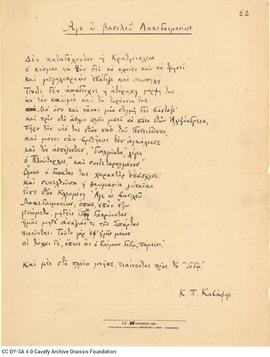 62
Άγε ω βασιλεύ Λακεδαιμονίων
Δεν καταδέχονταν η Κρατησίκλεια
ο κόσμος να την δει να κλαίει και να θρηνεί·
και μεγαλοπρεπής εβάδιζε και σιωπηλή.
Τίποτε δεν απόδειχνε η ατάραχη μορφή της
απ' τον καϋμό και τα τυράννια της.
Μα όσο και νάναι μια στιγμή δεν βάσταξε·
και πριν στο άθλιο πλοίο μπει να πάει στην Αλεξάνδρεια,
πήρε τον υιό της στον ναό του Ποσειδώνος,
και μόνοι σαν βρεθήκαν τον αγκάλιασε
και τον ασπάζονταν, «διαλγούντα», λέγει
ο Πλούταρχος, «και συντεταραγμένον».
Όμως ο δυνατός της χαρακτήρ επάσχισε·
και συνελθούσα η θαυμασία γυναίκα
είπε στον Κλεομένη «Άγε ω βασιλεύ
Λακεδαιμονίων, όπως, επάν έξω
γενώμεθα, μηδείς ίδη δακρύοντας
ημάς μηδέ ανάξιόν τι της Σπάρτης
ποιούντας. Τούτο γαρ εφ' ημίν μόνον·
αι τύχαι δε, όπως αν ο δαίμων διδώ, πάρεισι.»
Και μες στο πλοίο μπήκε, πιαίνοντας προς το «διδώ».
Κ. Π. Καβάφης
CC BY-SA 4.0 Cavafy Archive Onassis Foundation